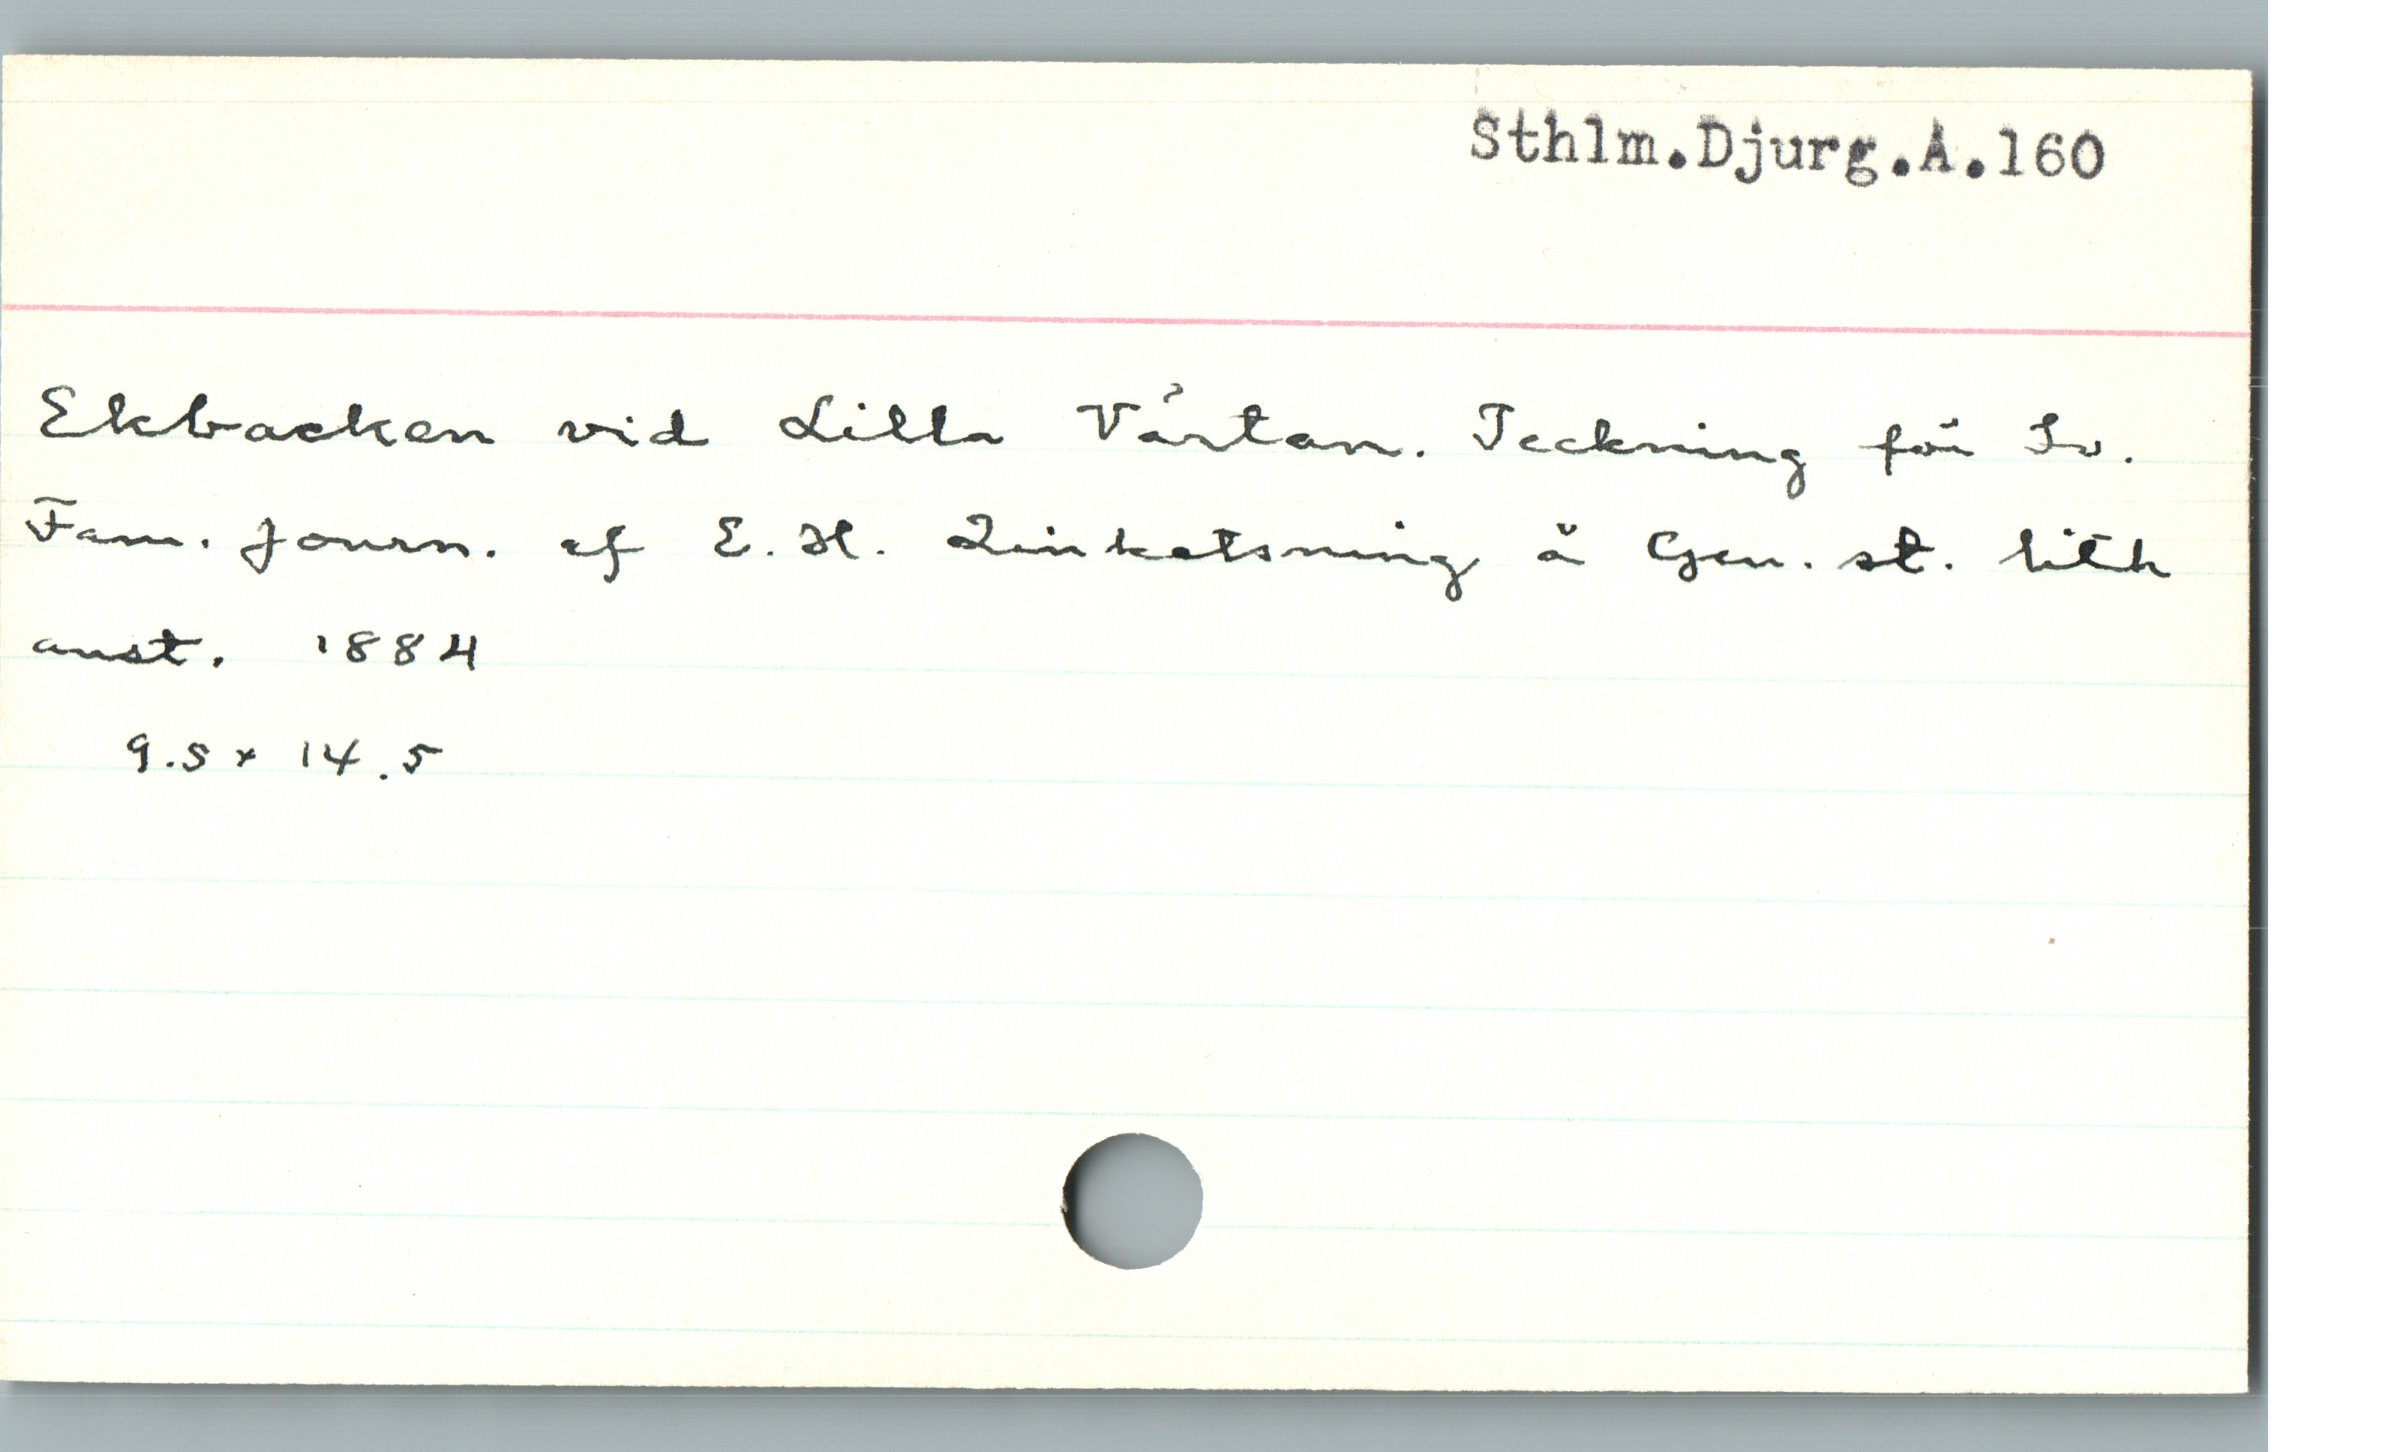 Sthlm.Djurg.A.160
Ekbacken vid Lilla Värtan. Teckning för Sv.
Fam. Journ. af E. H. Zinketsning å Gen. st. lith
anst. 1884
9.5 x 14.5